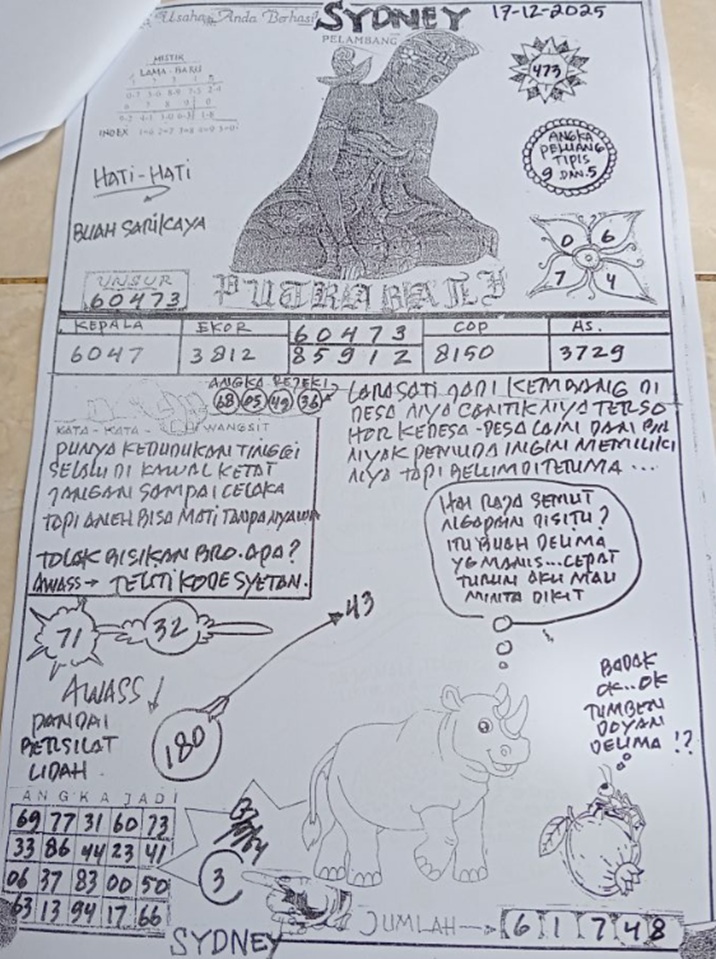 Usaha Anda Berhasil
SYDNEY
17-12-2025
PELAMBANG
MISTIK
LAMA - BARU
INDEX 1=6 2=7 3=8 4=9 5=0
473
ANGKA
PELUANG
TIPIS
9 DAN 5
HATI-HATI
BUAH SARIKAYA
0 6
7 4
UNSUR
60473
PUTRA BALI
KEPALA EKOR 60473 COP AS.
6047 3812 85912 8150 3729
ANGKA REJEKI
68 05 49 36
KATA - KATA - WANGSIT
PUNYA KEDUDUKAN TINGGI
SELALU DI KAWAL KETAT
JANGAN SAMPAI CELAKA
TAPI ANEH BISA MATI TANPA NYAWA
TOLAK BISIKAN BRO. APA?
AWASS → TELITI KODE SYETAN.
LARASATI JADI KEMBANG DI
DESA NYA CANTIK NYA TERSO
HOR KEDESA-DESA LAIN DAN BAN
NYAK PEMUDA INGIN MEMILIKI
NYA TAPI BELUM DITERIMA ...
HAI RAJA SEMUT
NGAPAIN DISITU?
ITU BUAH DELIMA
YG MANIS...CEPAT
TURUN AKU MAU
MINTA DIKIT
71 32
43
180
AWASS!
PANDAI
BERSILAT
LIDAH
BADAK
OK..OK
TUMBEN
DOYAN
DELIMA !?
ANGKA JADI
69 77 31 60 73
33 86 44 23 41
06 37 83 00 50
63 13 94 17 66
3
JUMLAH → 6 1 7 4 8
SYDNEY